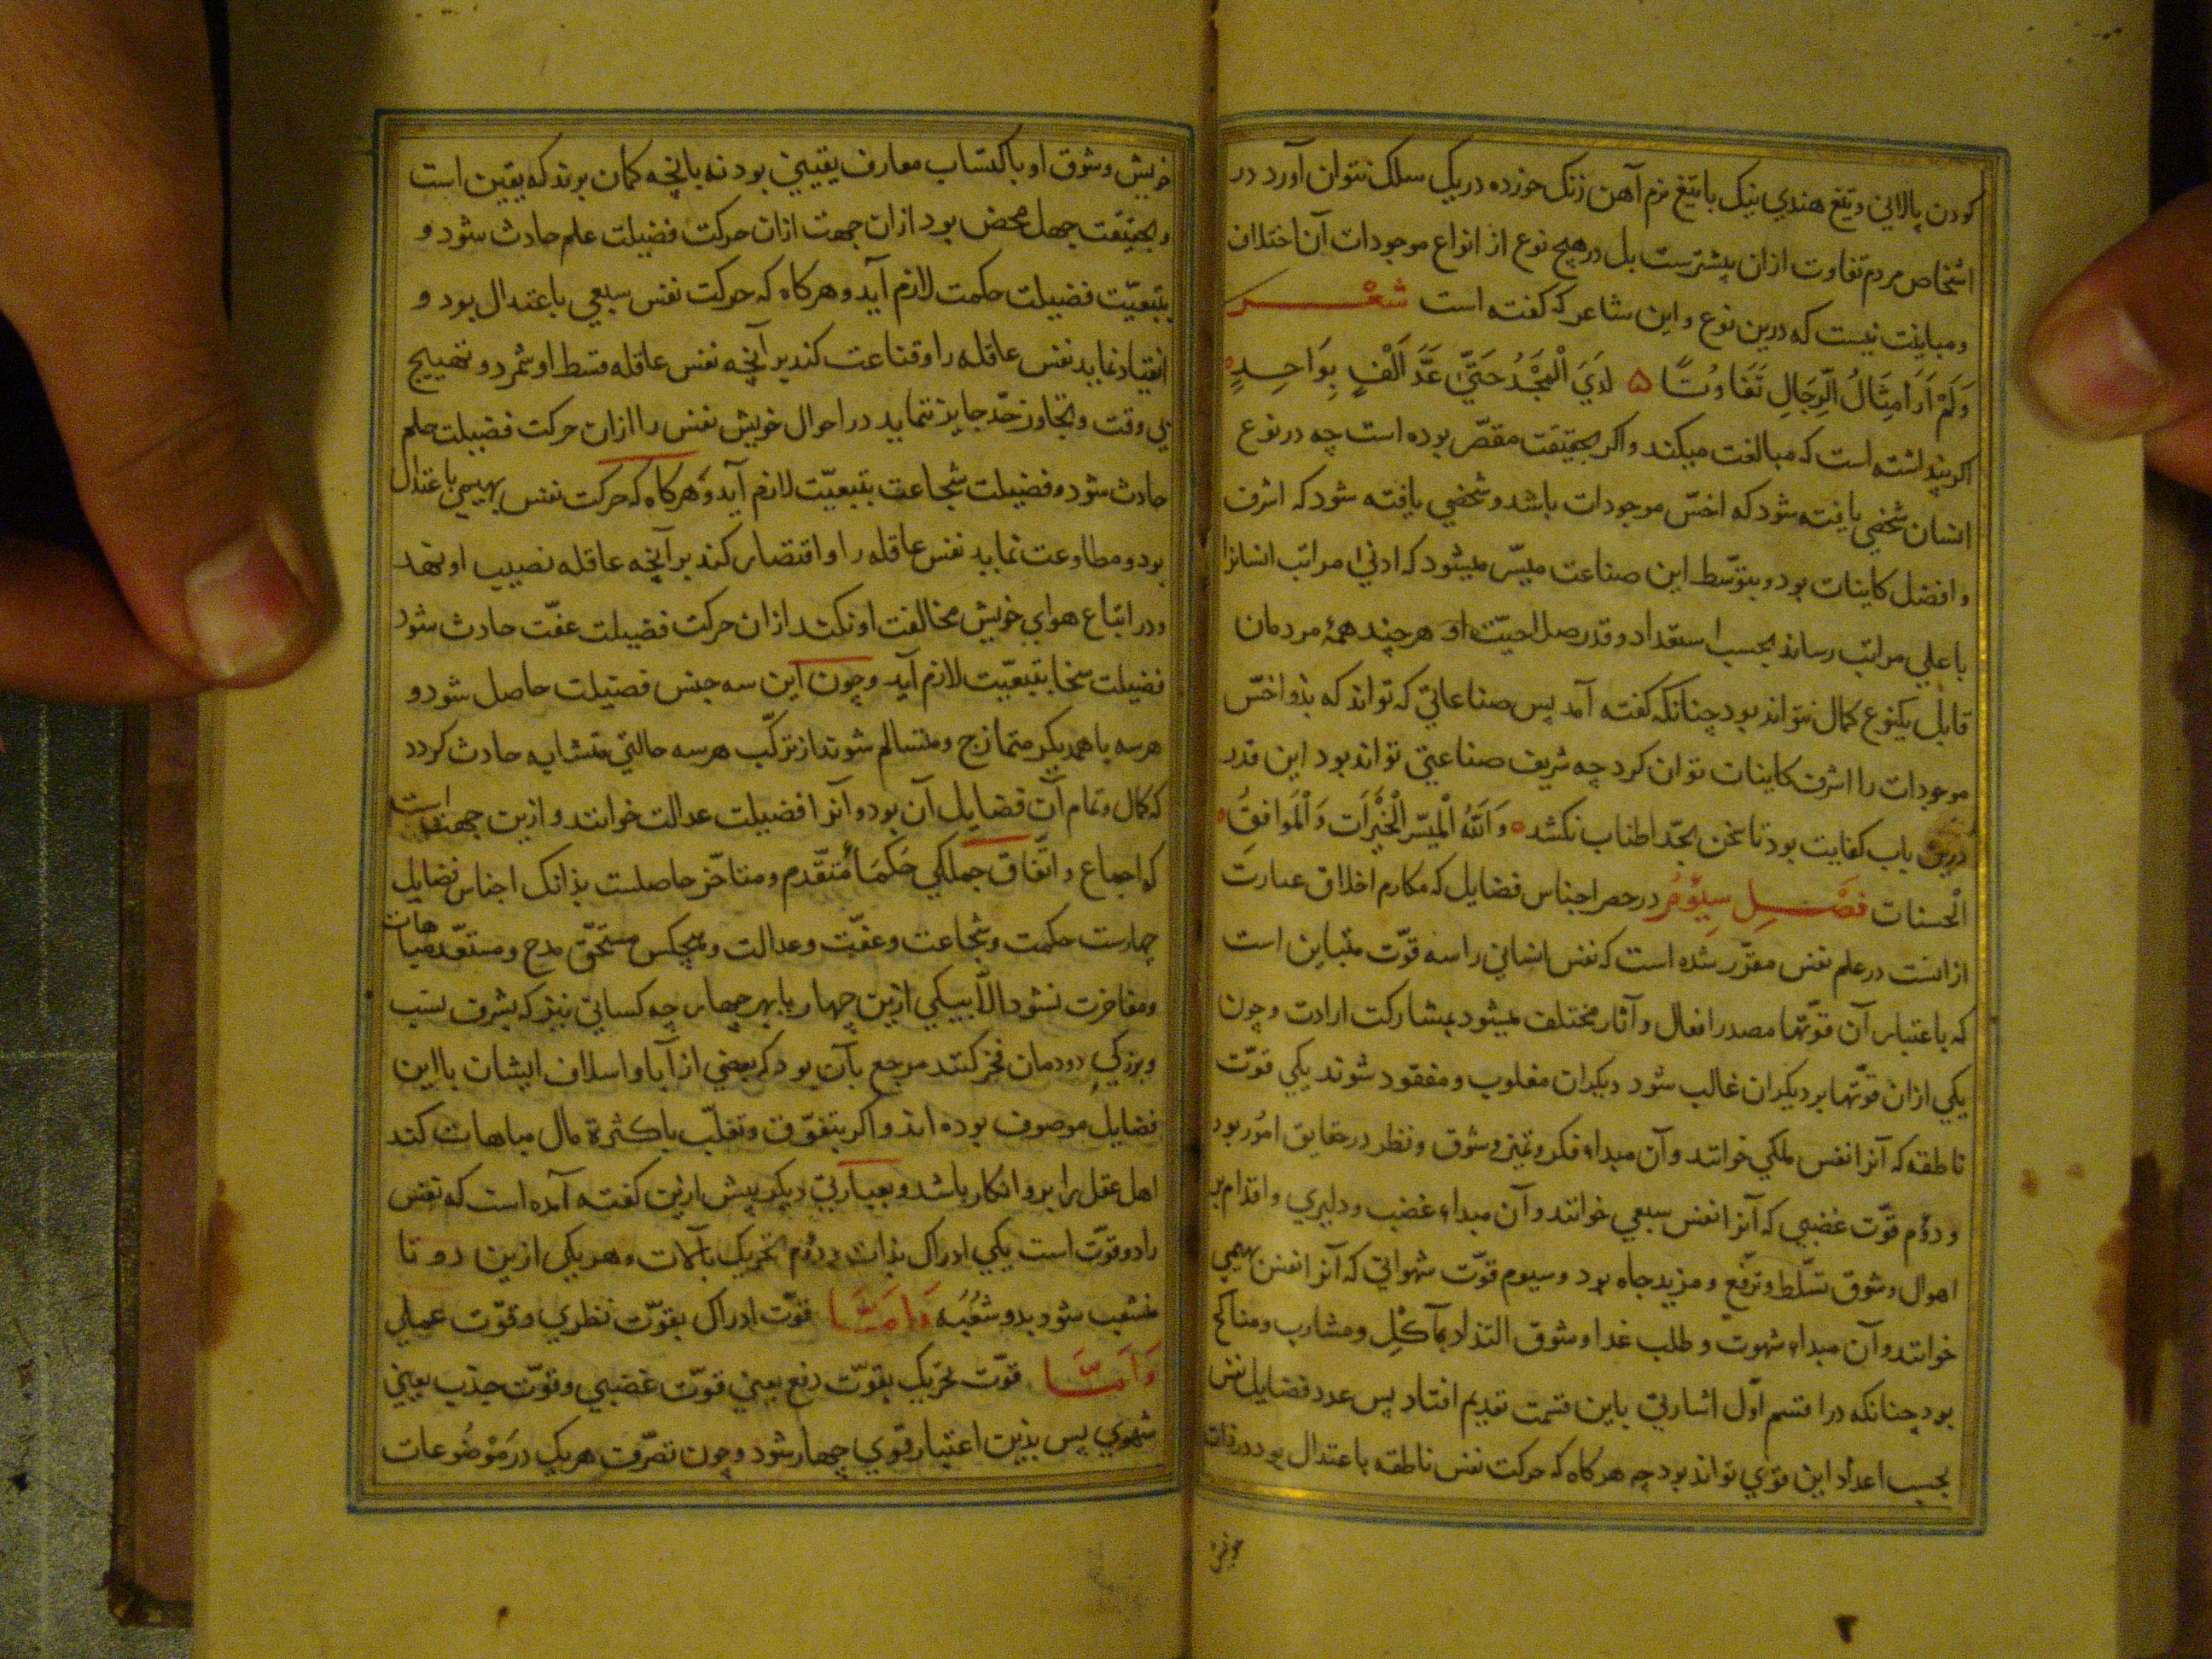 کردن پالانی و تیغ هندی نیک با تیغ نرم آهن زنک خورده در یک سلک نتوان آورد در
اشخاص مردم تفاوت ازان بیشترست بل در هیچ نوع از انواع موجودات آن اختلاف
ومباینت نیست که درین نوع و این شاعر که کفته است شعر
وَلَمْ اَرَ اَمثَالُ الِّرجَالِ تَفَاوتًا لدَيَ الْمَجْدُ حَتَّیٰ عَدَّ اَلْفٍ بِوَاحِدٍ
اکر پنداشته است که مبالغت میکند و اکر بحقیقت مقصّر بوده است چه در نوع
انسان شخصی یافته شود که اخسّ موجودات باشد و شخصی یافته شود که اشرف
و افضل کاینات بود و بتوّسط این صناعت میسّر میشود که ادنیٰ مراتب انسانرا
باعلی مراتب رساند بحسب استعداد و قدر صلاحیّت او هر چند همهٔ مردمان
قابل یکنوع کمال نتواند بود چنانکه کفته آمد پس صناعاتی که تواند که بذو اخسّ
موجودات را اشرف کاینات توان کرد چه شریف صناعتی تواند بود این قدر
درین باب کفایت بود تا سخن بحّد اطناب نکشد وَ اَللّٰهُ اَلْمیَسّر الْخَیْرَات وَ اْلمَوافقُ
الْحسنات فصْل سِیُوْمُر در حصر اجناس فضایل که مکارم اخلاق عبارت
ازانست در علم نفس مقرّر شده است که نفس انسانی را سه قوّت متباین است
که باعتبار آن قوّتها مصدر افعال و آثار مختلف میشود بمشارکت ارادت و چون
یکی ازان قوّتها بر دیکران غالب شود دیکران مغلوب و مفقود شوند یکی قوّت
ناطقه که آنرا نفس ملکی خوانند و آن مبداء فکر و تمیز و شوق و نظر در حقایق امُور بود
و دوُم قوّت غضبی که آنرا نفس سبعی خوانند و آن مبداء غضب و دلیری و اقدام بر
اهوال و شوق تسّلط و ترّفع و مزید جاه بود و سیوم قوّت شهوانی که آنرا نفس بهیمی
خوانند و آن مبداء شهوت و طلب غدا و شوق التذاد بمآکل و مشارب و مناکح
بود چنانکه در اقسم اوّل اشارتی باین قسمت تقدیم افتاد پس عدد فضایل نفس
بحسب اعداد این قوّی تواند بود چه هر کاه که حرکت نفس ناطقه باعتدال بود در ذات
خویش
خویش و شوق او باکتساب معارف یقینی بود نه بانچه کمان برند که یقین است
و بحقیقت جهل محض بود ازان جهت ازان حرکت فضیلت علم حادث شود و
بتبعیّت فضیلت حکمت لازم آید و هر کاه که حرکت نفس سبعی باعتدال بود و
انقیاد نماید نفس عاقله را و قناعت کند بر آنچه نفس عاقله قسط او شمرد و تهییج
بی وقت و تجاوز حّد جایز ننماید در احوال خویش نفس را ازان حرکت فضیلت حلم
حادث شود و فضیلت شجاعت بتبعیّت لازم آید و هر کاه که حرکت نفس بهیمی باعتدال
بود و مطاوعت نماید نفس عاقله را و اقتصار کند بر آنچه عاقله نصیب او نهد
و در اتباع هوای خویش مخالفت او نکند ازان حرکت فضیلت عفّت حادث شود
فضیلت سخا بتبعیّت لازم آید و چون این سه جنس فضیلت حاصل شود و
هر سه با همدیکر متمازج و متسالم شوند از ترکّب هر سه حالتی متشابه حادث کردد
که کمال و تمام آن فضایل آن بود و آنرا فضیلت عدالت خوانند و ازین جهتست
که اجماع و اتّفاق جملکی حکمَا مُتقّدم و متاخّر حاصلست بذانک اجناس فضایل
چهارست حکمت و شجاعت و عفّت و عدالت و هیچکس مستحّق مدح و مستعّد مباهات
و مفاخرت نشود الّا بیکی ازین چهار یا بهر چهار چه کسانی نیز که بشرف نسب
و بزرکی دودمان فخر کنند مرجع بآن بود که بعضی از آبا و اسلاف ایشان با این
فضایل موصوف بوده اند و اکر بتفوّق و تغلّب یا کثرة مال مباهات کند
اهل عقل را برو انکار باشد و بعبارتی دیکر پیش ازین کفته آمده است که نفس
را دو قوّت است یکی ادراک بذات و دوُم تحریک بآلات و هر یکی ازین دو تا
منشعب شود بدو شُعْبَه وَامَّا قوّت ادراک بقوّت نظری و قوّت عملی
وَ اَمَّا قوّت تحریک بقوّت دفع یعنی قوّت غضبی و قوّت جذب یعنی
شهوی پس بذین اعتبار قوّی چهار شود و چون تصرّف هر یک در مَوْضُوعات